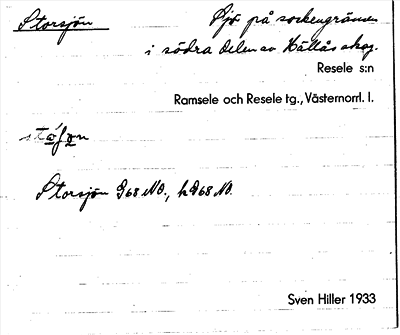 Storsjön Sjö på sockengränsen
i södra delen av Hällås skog.
Resele s:n
Ramsele och Resele tg., Västernorrl. l.
Storsjön G68 NO., h G68 NO.
Sven Hiller 1933